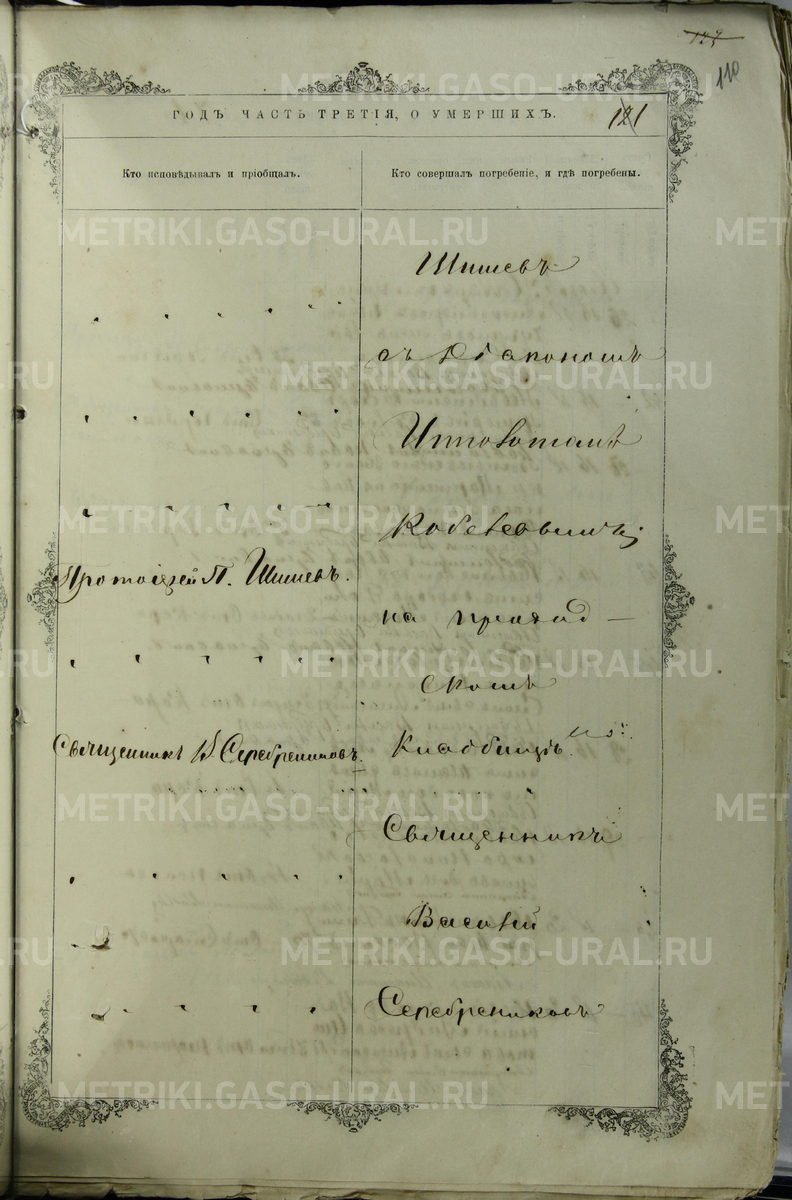 110
ГОДЪ ЧАСТЬ ТРЕТІЯ, О УМЕРШИХЪ.
121
Кто исповѣдывалъ и пріобщалъ.
Кто совершалъ погребеніе, и гдѣ погребены.
Шишевъ
съ Діакономъ
Ипполитомъ
на приход-
скомъ
Кладбищѣ.
Священникъ
Василій
Серебрениковъ
Протоіерей П. Шишевъ.
Священникъ В. Серебрениковъ.
METRIKI.GASO-URAL.RU